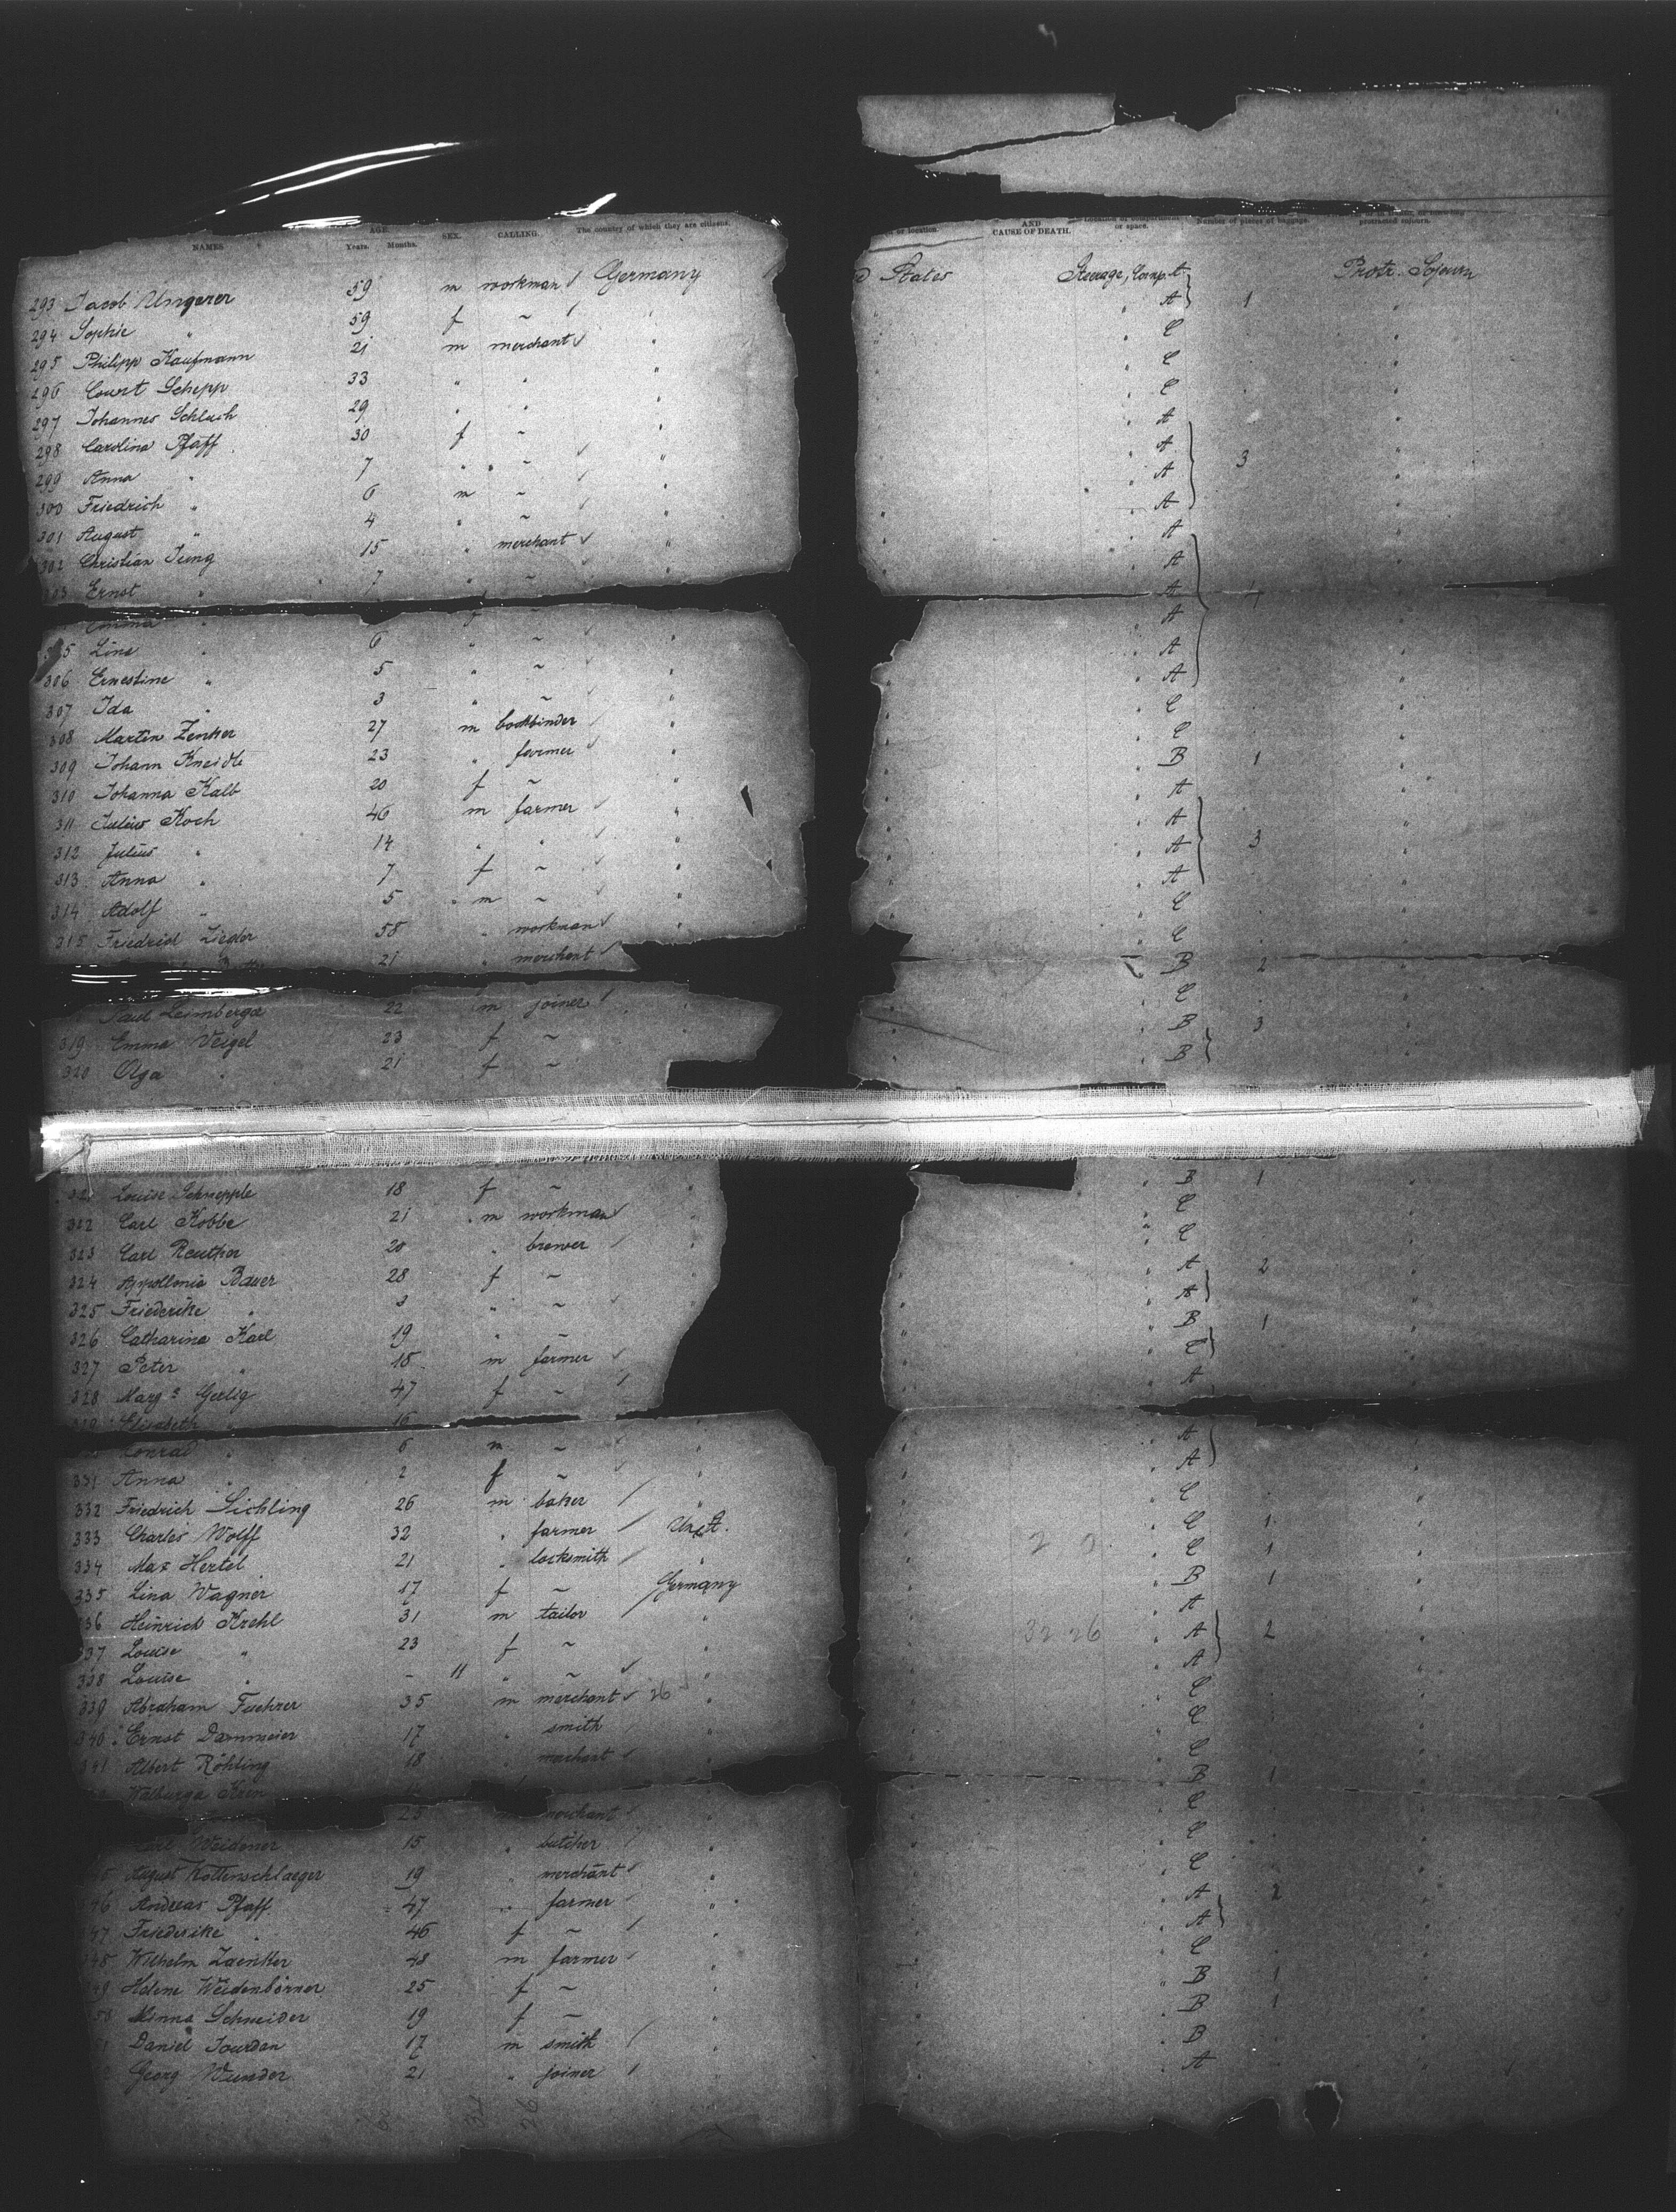 NAMES AGE. Years. Months. SEX. CALLING. The country of which they are citizens. or location. AND CAUSE OF DEATH. or space. Number of pieces of baggage. protracted sojourn.
293 Jacob Ungerer 59 m workman Germany States Steerage, Comp.t A 1 Protr. Sojourn
294 Sophie " 59 f ~ "
295 Philipp Kaufmann 21 m merchant " C
296 Court Schepp 33 " " " C
297 Johannes Schlach 29 " " " C
298 Carolina Pfaff 30 f ~ " A
299 Anna " 7 " ~ " A 3
300 Friedrich " 6 m ~ " A
301 August " 4 " ~ " A
302 Christian Jung 15 " merchant " A
303 Ernst " 7 " ~ " A
Emma " f A
305 Lina " 6 " ~ " A
306 Ernestine " 5 " ~ " A
307 Ida " 3 " ~ " A
308 Martin Zenker 27 m bookbinder " C
309 Johann Kneidl 23 " farmer " C
310 Johanna Kalb 20 f ~ " B 1
311 Julius Koch 46 m farmer " A
312 Julius " 14 " " " A
313 Anna " 7 f ~ " A 3
314 Adolf " 5 m ~ " A
315 Friedrich Ziegler 58 " workman " C
21 " merchant C
Paul Leimberger 22 m joiner " C
319 Emma Veigel 23 f ~ B 3
320 Olga " 21 f ~ B
321 Louise Schnepple 18 f ~ " B 1
322 Carl Kobbe 21 m workman " C
323 Carl Reuther 20 " brewer " C
324 Appollonia Bauer 28 f ~ A 2
325 Friederike " 3 " ~ A
326 Catharina Karl 19 " ~ B 1
327 Peter " 18 m farmer C
328 Marg.a Gerlig 47 f ~ A
329 Elisabeth " 16
Konrad " 6 m ~ " A
331 Anna " 2 f ~ " A
332 Friedrich Sichling 26 m baker " C
333 Charles Wolff 32 " farmer Un. St. C 1
334 Max Hertel 21 " locksmith " C 1
335 Lina Wagner 17 f ~ Germany B 1
336 Heinrich Krehl 31 m tailor " A
337 Louise " 23 f ~ " A 2
338 Louise " - 11 " ~ " A
339 Abraham Fuehrer 35 m merchant 26 " C
340 Ernst Dammeier 17 " smith " C
341 Albert Röhling 18 " merchant " C
Walburga B 1
25 merchant " C
Carl Weidener 15 " butcher " C
345 August Rottenschlaeger 19 " merchant " C
346 Andreas Pfaff 47 " farmer " A 2
347 Friederike " 46 f ~ " A
348 Wilhelm Zaenker 48 m farmer " C
349 Helene Weidenbörner 25 f ~ " B 1
350 Minna Schneider 19 f ~ " B 1
351 Daniel Jourdan 17 m smith " B
Georg Wunder 21 " joiner " A